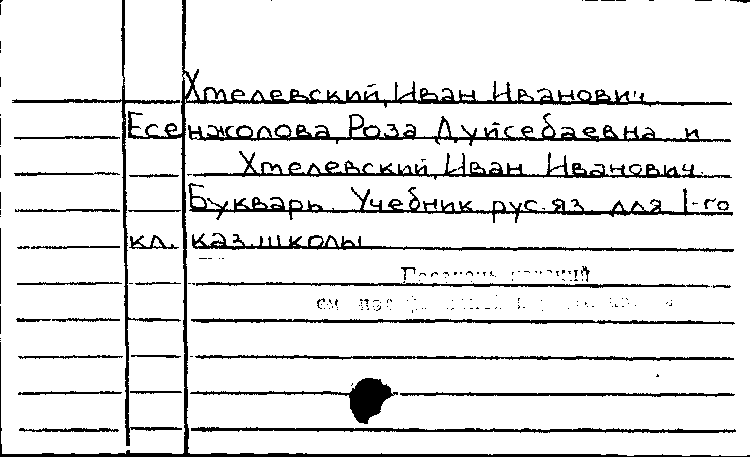 Хмелевский, Иван Иванович
Есенжолова, Роза Дуйсебаевна и
Хмелевский, Иван Иванович.
Букварь. Учебник рус. яз. для 1-го
кл. каз. школы
см.